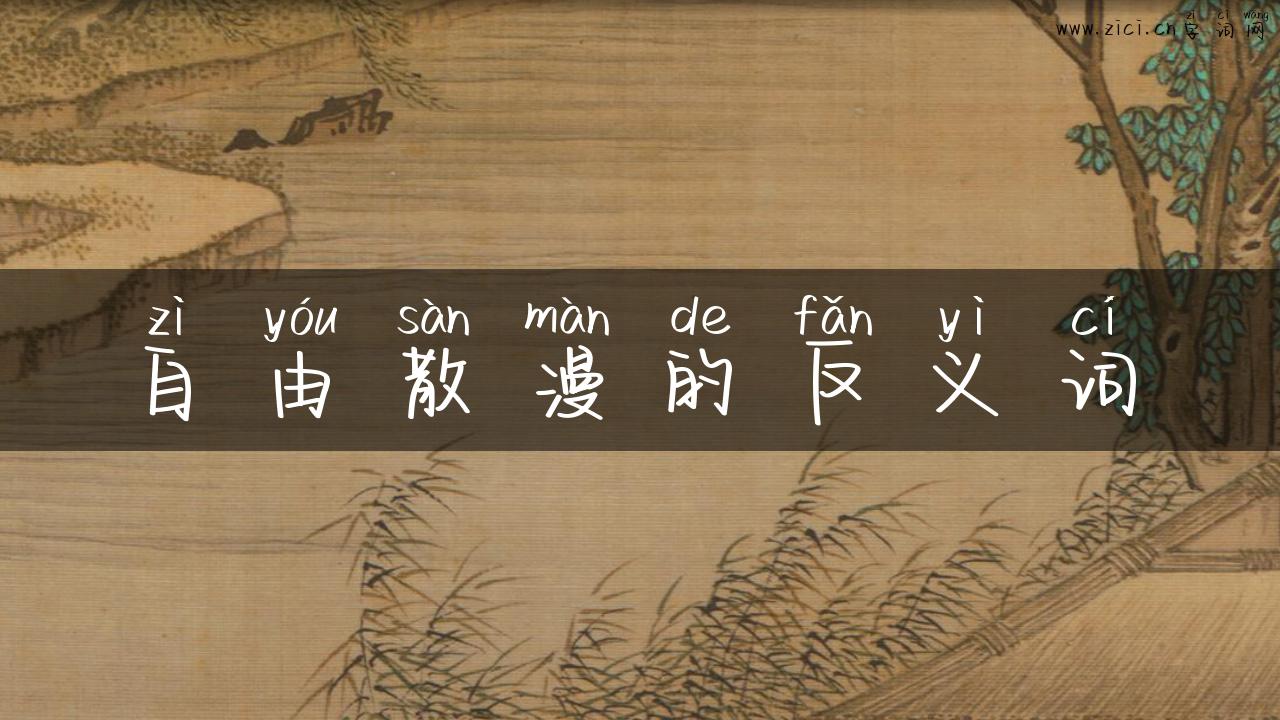 zì cí wǎng
www.zici.cn字词网
zì yóu sàn màn de fǎn yì cí
自由散漫的反义词